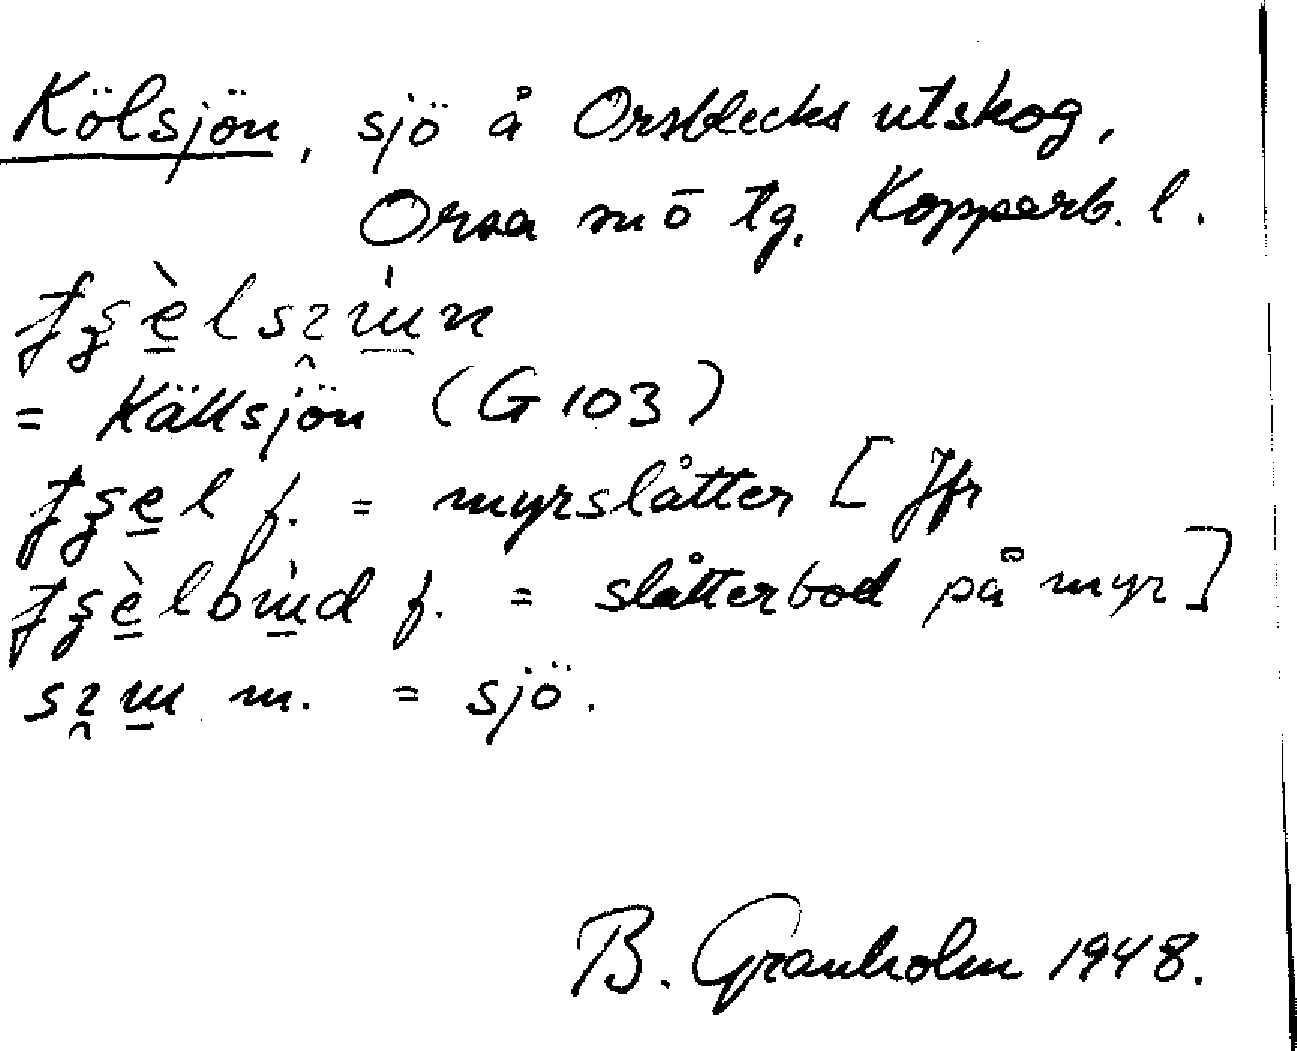 Kölsjön, sjö å Orsblecks utskog,
Orsa sn ö tg. Kopparb. l.
= Källsjön (G 103)
f. = myrslåtter [Jfr
f. = slåtterbod på myr]
m. = sjö.
B. Granholm 1948.